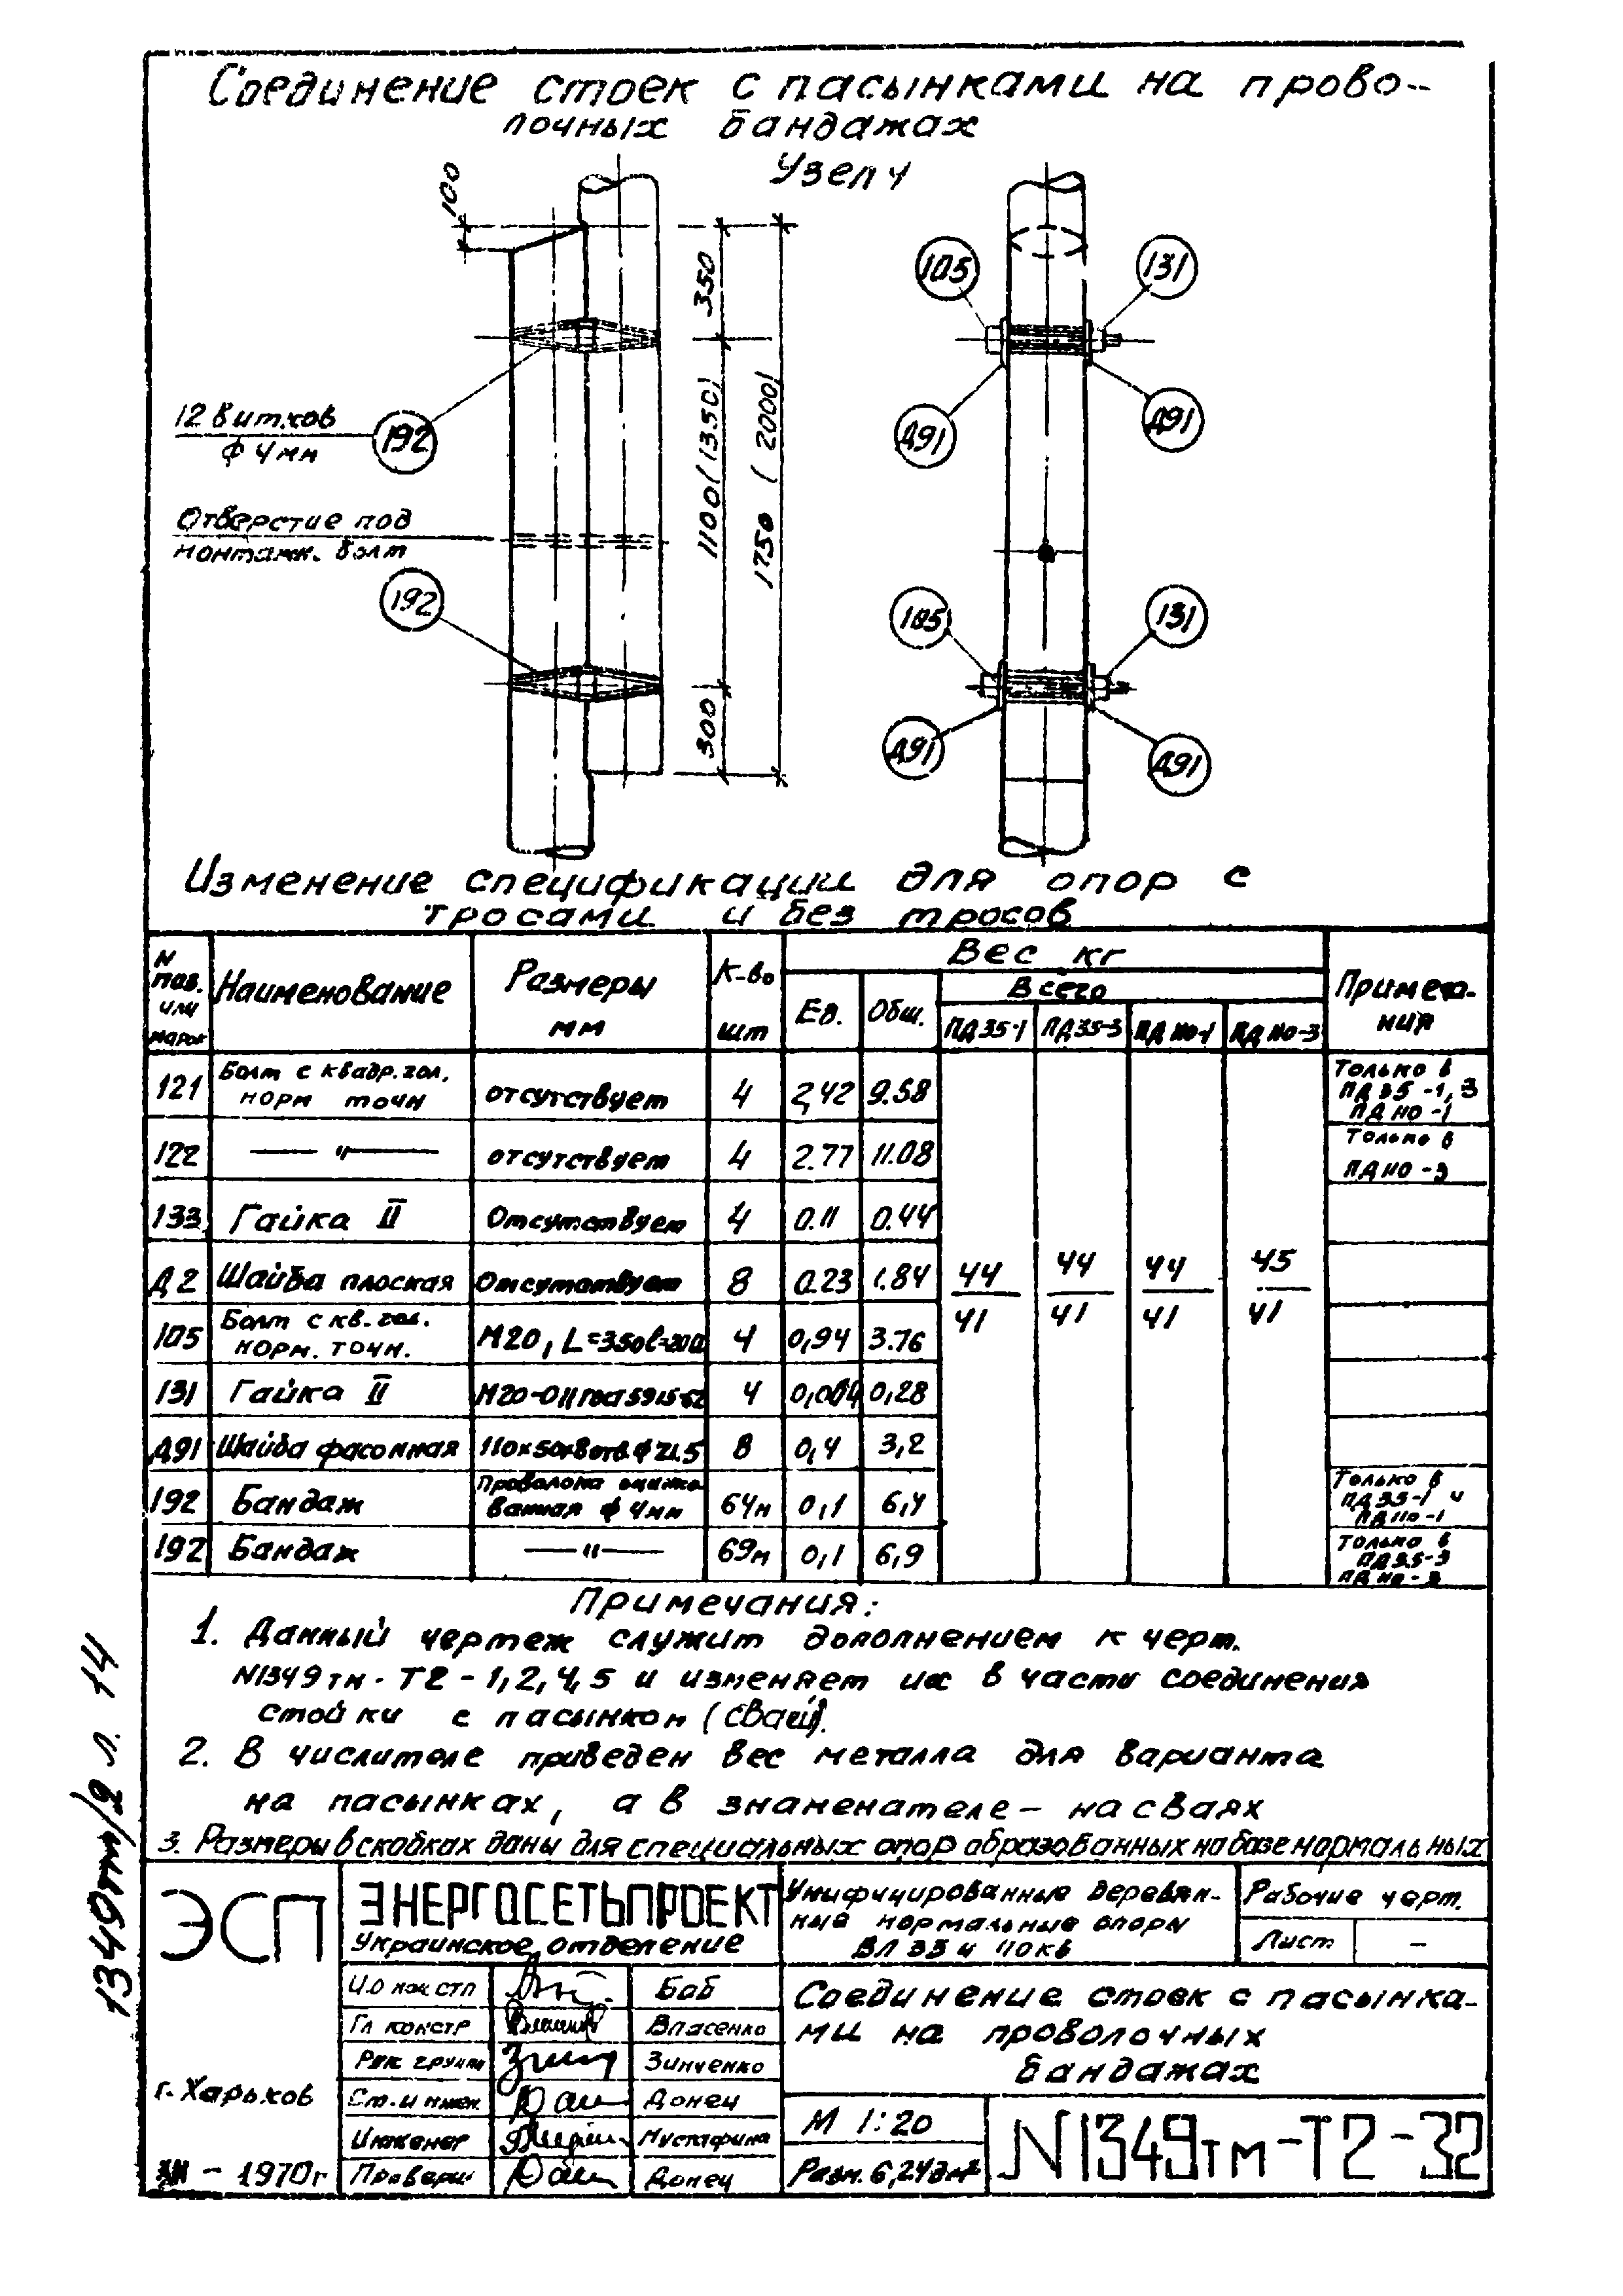 Соединение стоек с пасынками на прово-
лочных бандажах
Узел 4
100
350
1100(1350)
1750 (2000)
300
12 витков
ф 4 мм
192
Отверстие под
монтаж. болт
192
105
131
Д91
Д91
105
131
Д91
Д91
Изменение спецификации для опор с
тросами и без тросов
N поз. или марок
Наименование
Размеры мм
К-во шт
Вес кг
Ед.
Общ.
Всего
ПД35-1
ПД35-3
ПД110-1
ПД110-3
Примеча-
ния
121 Болт с квадр. гол. норм точн отсутствует 4 2,42 9.68 Только в ПД35-1,3 ПД110-1
122 —〃— отсутствует 4 2.77 11.08 Только в ПД110-3
133 Гайка II Отсутствует 4 0.11 0.44
Д2 Шайба плоская Отсутствует 8 0.23 1.84 44/41 44/41 44/41 45/41
105 Болт с кв. гол. норм. точн. М20, L=350 l=200 4 0,94 3.76
131 Гайка II М20-011 ГОСТ 5915-62 4 0,28
Д91 Шайба фасонная 110х50х8 отв. ф 21.5 8 0,4 3,2
192 Бандаж Проволока оцинко-ванная ф 4мм 64м 0,1 6,4 Только в ПД35-1 и ПД110-1
192 Бандаж —〃— 69м 0,1 6,9 Только в ПД35-3 ПД110-3
Примечания:
1. Данный чертеж служит дополнением к черт.
N1349тм-Т2-1,2,4,5 и изменяет их в части соединения
стойки с пасынком (сваей).
2. В числителе приведен вес металла для варианта
на пасынках, а в знаменателе – на сваях
3. Размеры в скобках даны для специальных опор образованных на базе нормальных
1349тм/2 л. 14
ЭСП
ЭНЕРГОСЕТЬПРОЕКТ
Украинское отделение
Унифицированные деревян-
ные нормальные опоры
ВЛ 35 и 110кв
Рабочие черт.
Лист –
И.О нач стп Боб
Гл констр Власенко
Рук группы Зинченко
Ст. инжен. Донец
Инженер Мустафина
Проверил Донец
г. Харьков
– 1970г
Соединение стоек с пасынка-
ми на проволочных
бандажах
М 1:20
Разм. 6,24дм²
N1349тм-Т2-32